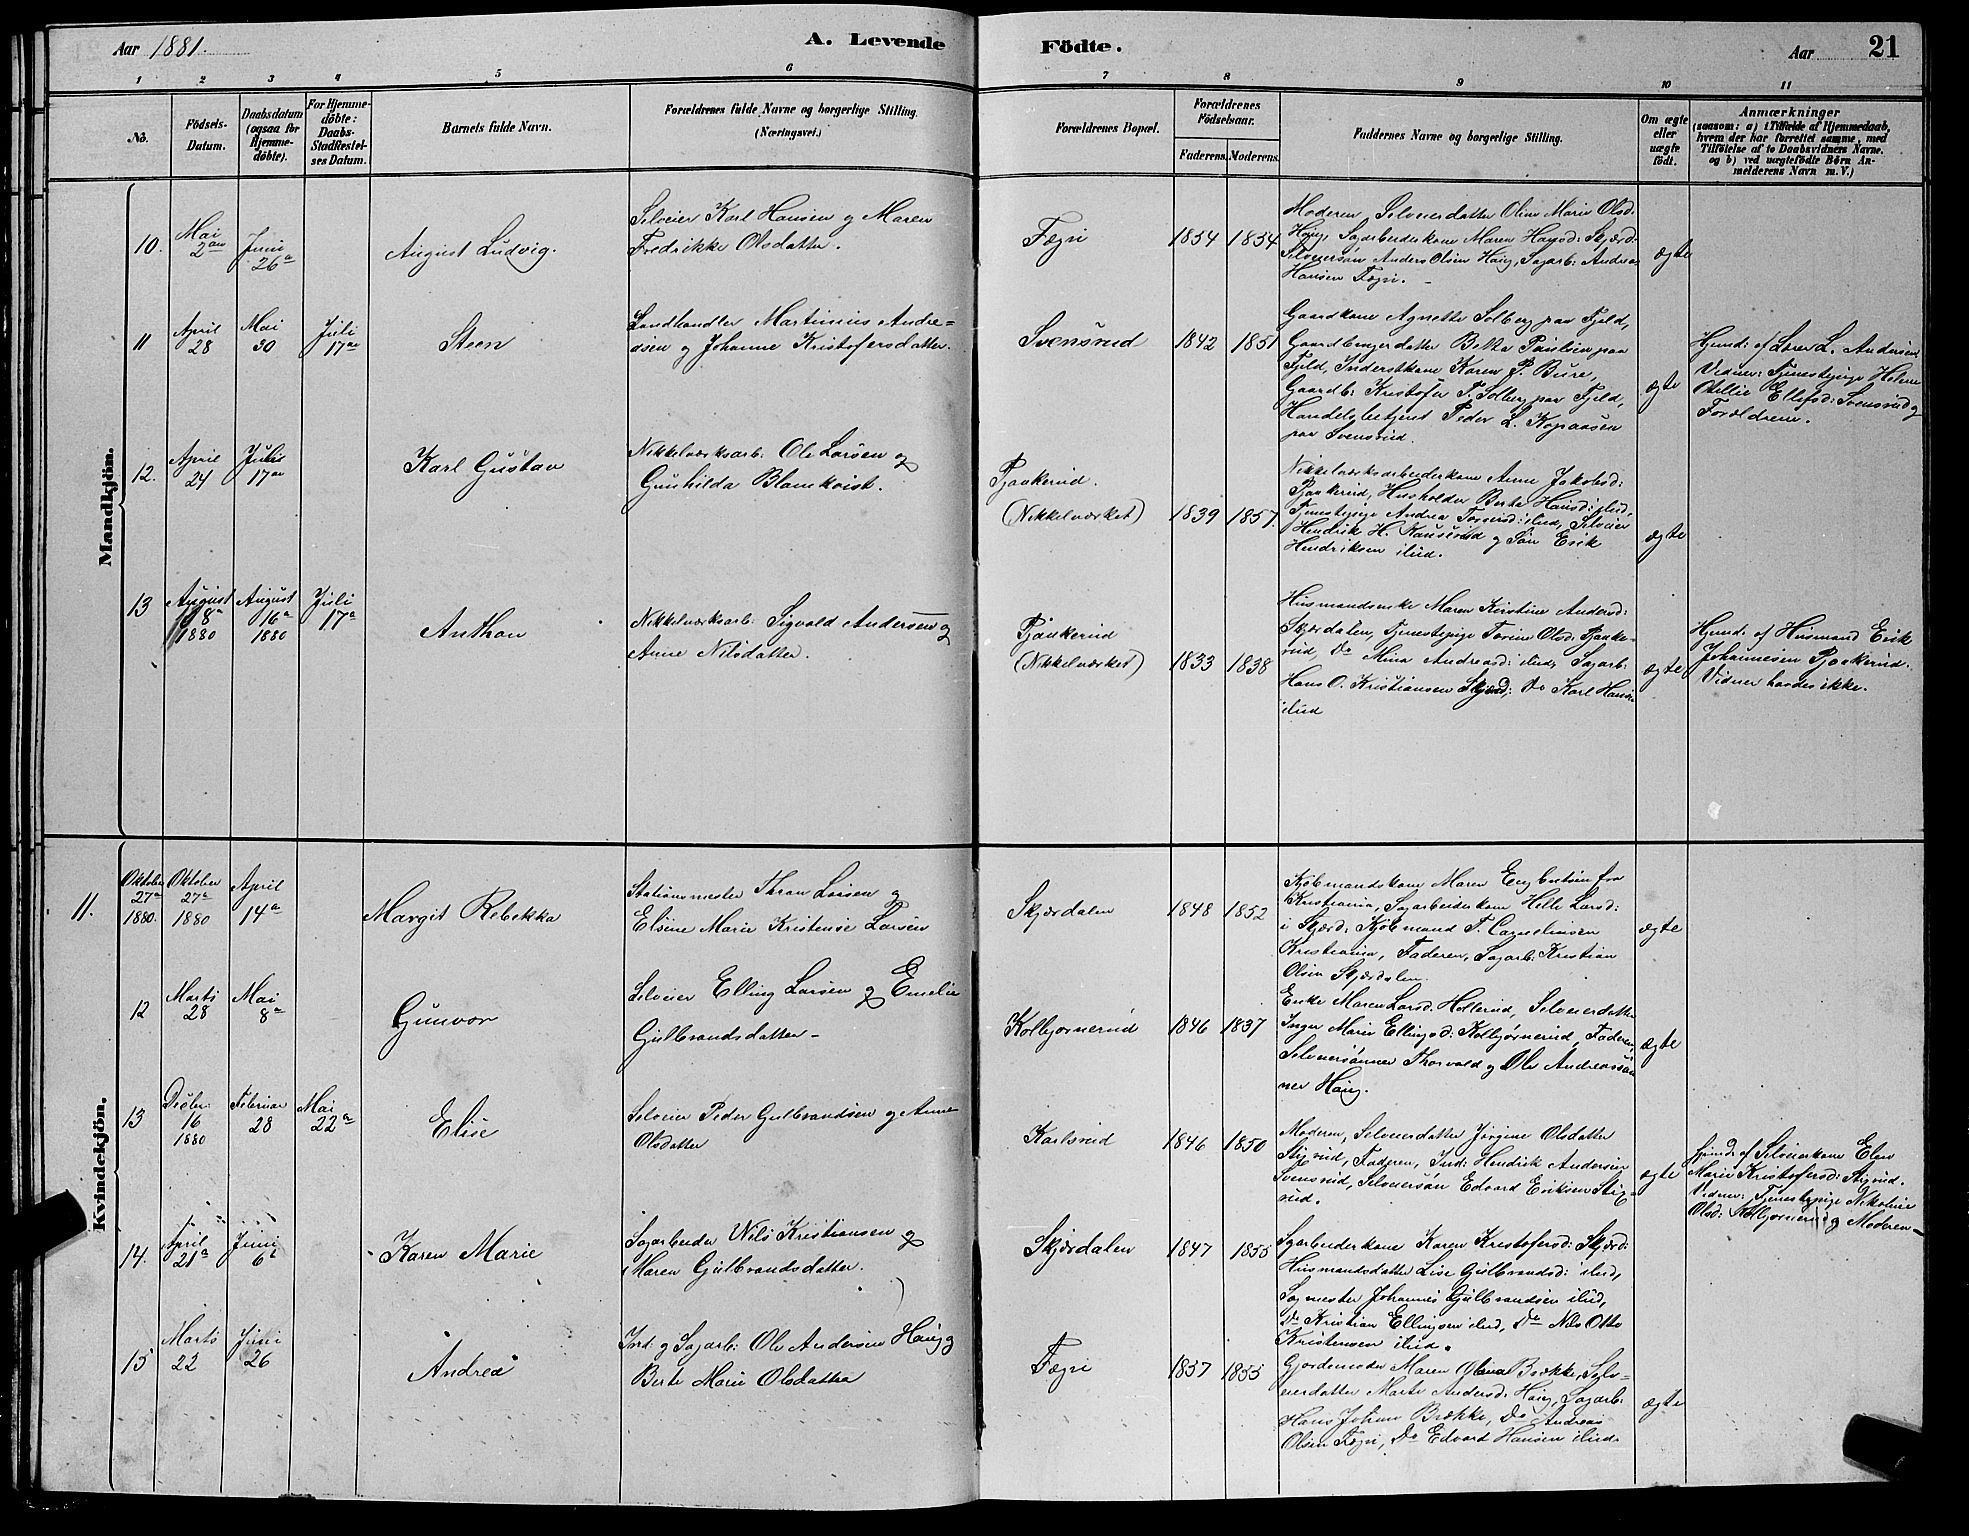 Aar 1881.
A. Levende
Födte.
Aar
21
1 2 3 4 5 6 7 8 9 10 11
No.
Födsels-
Datum.
Daabsdatum
(ogsaa for
Hjemme-
döbte).
For Hjemme-
döbte:
Daabs-
Stadfæstel-
ses Datum.
Barnets fulde Navn.
Forældrenes fulde Navne og borgerlige Stilling.
(Næringsvei.)
Forældrenes Bopæl.
Forældrenes
Födselsaar.
Faderens. Moderens.
Faddernes Navne og borgerlige Stilling.
Om ægte
eller
uægte
födt.
Anmærkninger
(saasom: a) i Tilfælde af Hjemmedaab,
hvem der har forrettet samme, med
Tilföielse af to Daabsvidners Navne.
og b) ved uægtefödte Börn An-
melderens Navn m. V.)
Mandkjön.
10.
Mai
2den
Juni
26a
August Ludvig.
Selveier Karl Hansen og Maren
Fredrikke Olsdatter.
Fægri
1854 1854
Moderen, Selveierdatter Oline Marie Olsd.
Haug, Sagarbeiderkone Maren Hansd: Skjærd.
Selveiersøn Anders Olsen Haug, Sagarb: Andreas
Hansen Fægri.
ægte
11
April
28
Mai
30
Juli
17de
Steen
Landhandler Martinius Andre=
asen og Johanne Kristofersdatter.
Svensrud
1842 1851
Gaardkone Agnethe Solberg paa Fjeld,
Gaardbrugerdatter Betta Paulsen paa
Fjeld, Inderstkone Karen P. Bure,
Gaardb: Kristofer T. Solberg paa Fjeld,
Handelsbetjent Peder L. Kopaasen
paa Svensrud.
ægte
Hjmd: af Lærer L. Andersen
Vidner: Tjenestepige Helene
Otellie Ellefsd: Svensrud og
Forældrene.
12.
April
24
Juli
17de
Karl Gustav
Nikkelværksarb: Ole Larsen og
Gunhilda Blomkvist.
Pjaakerud.
(Nikkelværket)
1839 1857
Nikkelværksarbeiderkone Anne Jakobsd:
Pjaakerud, Husholder Berta Hansd: ibid,
Tjenestepige Andrea ibid, Selveier
Hendrik H. og Søn Erik
Hendriksen ibid.
ægte
13
August
8a
1880
August
16a
1880
Juli
17a
Anthon
Nikkelværksarb: Sigvald Andersen og
Anne Nilsdatter.
Pjaakerud
(Nikkelværket)
1833 1838
Husmandsenke Maren Kristine Andersd:
Skjærdalen, Tjenestepige Torine Olsd: Pjaake-
rud, Do Mina Andreasd: ibid, Sagarb:
Hans O. Kristiansen Skjærd:, Do Karl Hansen
ibid
ægte
Hjmd: af Husmand Erik
Johannesen Pjaakerud.
Vidner havdes ikke.
Kvindekjön.
11.
Oktober
27a
1880.
Oktober
27a
1880
April
14a
Margit Rebekka
Stationsmester Thran Larsen og
Elsine Marie Kristense Larsen
Skjærdalen
1848 1852
Kjøbmandskone Maren Engbertsen fra
Kristiania, Sagarbeiderkone Helle Larsd:
i Skjærd:, Kjøbmand T. Corneliusen
Kristiania, Faderen, Sagarb: Kristian
Olsen Skjærdalen.
ægte
12
Marts
28
Mai
8a
Gunvor
Selveier Elling Larsen og Emelie
Gulbrandsdatter-
Kolbjørnerud
1846 1837
Enke Maren Larsd. Hollerud, Selveierdatter
Inger Marie Ellingsd: Kolbjørnerud, Faderen,
Selveiersønner Thorvald og Ole Andreassøn-
ner Haug.
ægte
13
Decbr:
16
1880
Februar
28
Mai
22a
Elise
Selveier Peder Gulbrandsen og Anne
Olsdatter
Karlsrud
1846 1850
Moderen, Selveierdatter Jørgine Olsdatter
Stigrud, Faderen, Ind: Hendrik Andersen
Svensrud, Selveiersøn Edvard Eriksen Stig-
rud.
ægte
Hjmd: af Selveierkone Elen
Marie Kristofersd: Stigrud.
Vidner: Tjenestepige Nikoline
Olsd: Kolbjørnerud og Moderen-
14.
April
21a
Juni
6a
Karen Marie
Sagarbeider Nils Kristiansen og
Maren Gulbrandsdatter.
Skjærdalen
1847 1855
Sagarbeiderkone Karen Kristofersd: Skjærd:
Husmandsdatter Lise Gulbrandsd: ibid,
Sagmester Johannes Gulbrandsen ibid,
Do Kristian Ellingsen ibid, Do Nils Otto
Kristensen ibid.
15
Marts
22
Juni
26
Andrea
Ind: og Sagarb: Ole Andersen Haug og
Berte Marie Olsdatter
Fægri
1857 1855
Gjordemoder Maren Oline Brække, Selv-
eierdatter Marte Andersd: Haug, Sagarb:
Hans Johan Brække, Do Andreas
Olsen Fægri, Do Edvard Hansen ibid.
ægte